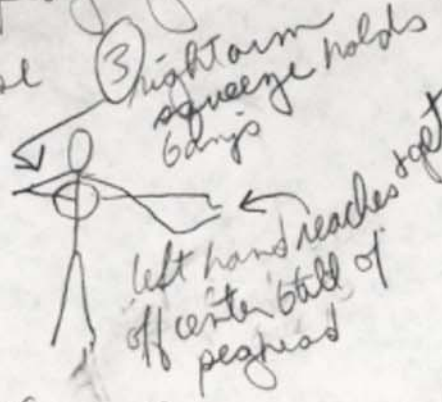 se
③ right arm
squeeze holds
banjo
left hand reaches & get
off center ball of
peghead